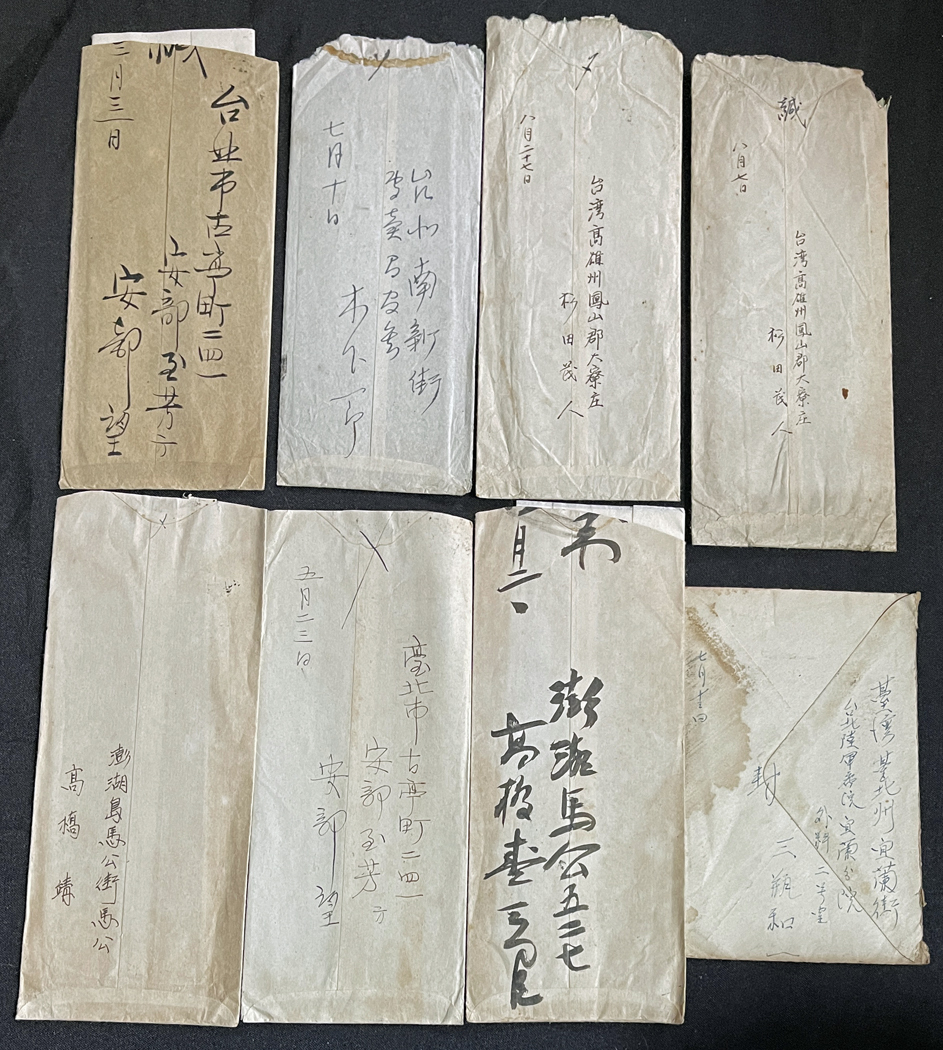 三月三日
台北市古亭町二四一
安部至芳方
安部望
七月十日
台北州南新街
専売局官舎
木下一郎
〆
八月二十七日
台湾高雄州鳳山郡大寮庄
松田茂人
緘
八月七日
台湾高雄州鳳山郡大寮庄
松田茂人
〆
澎湖島馬公街馬公
高橋靖
〆
五月二三日
臺北市古亭町二四一
安部至芳方
安部望
澎湖馬公五二七
高橋
七月十三日
臺湾臺北州宜蘭街
台北陸軍病院宜蘭分院
外科二号室
封
三瓶和一